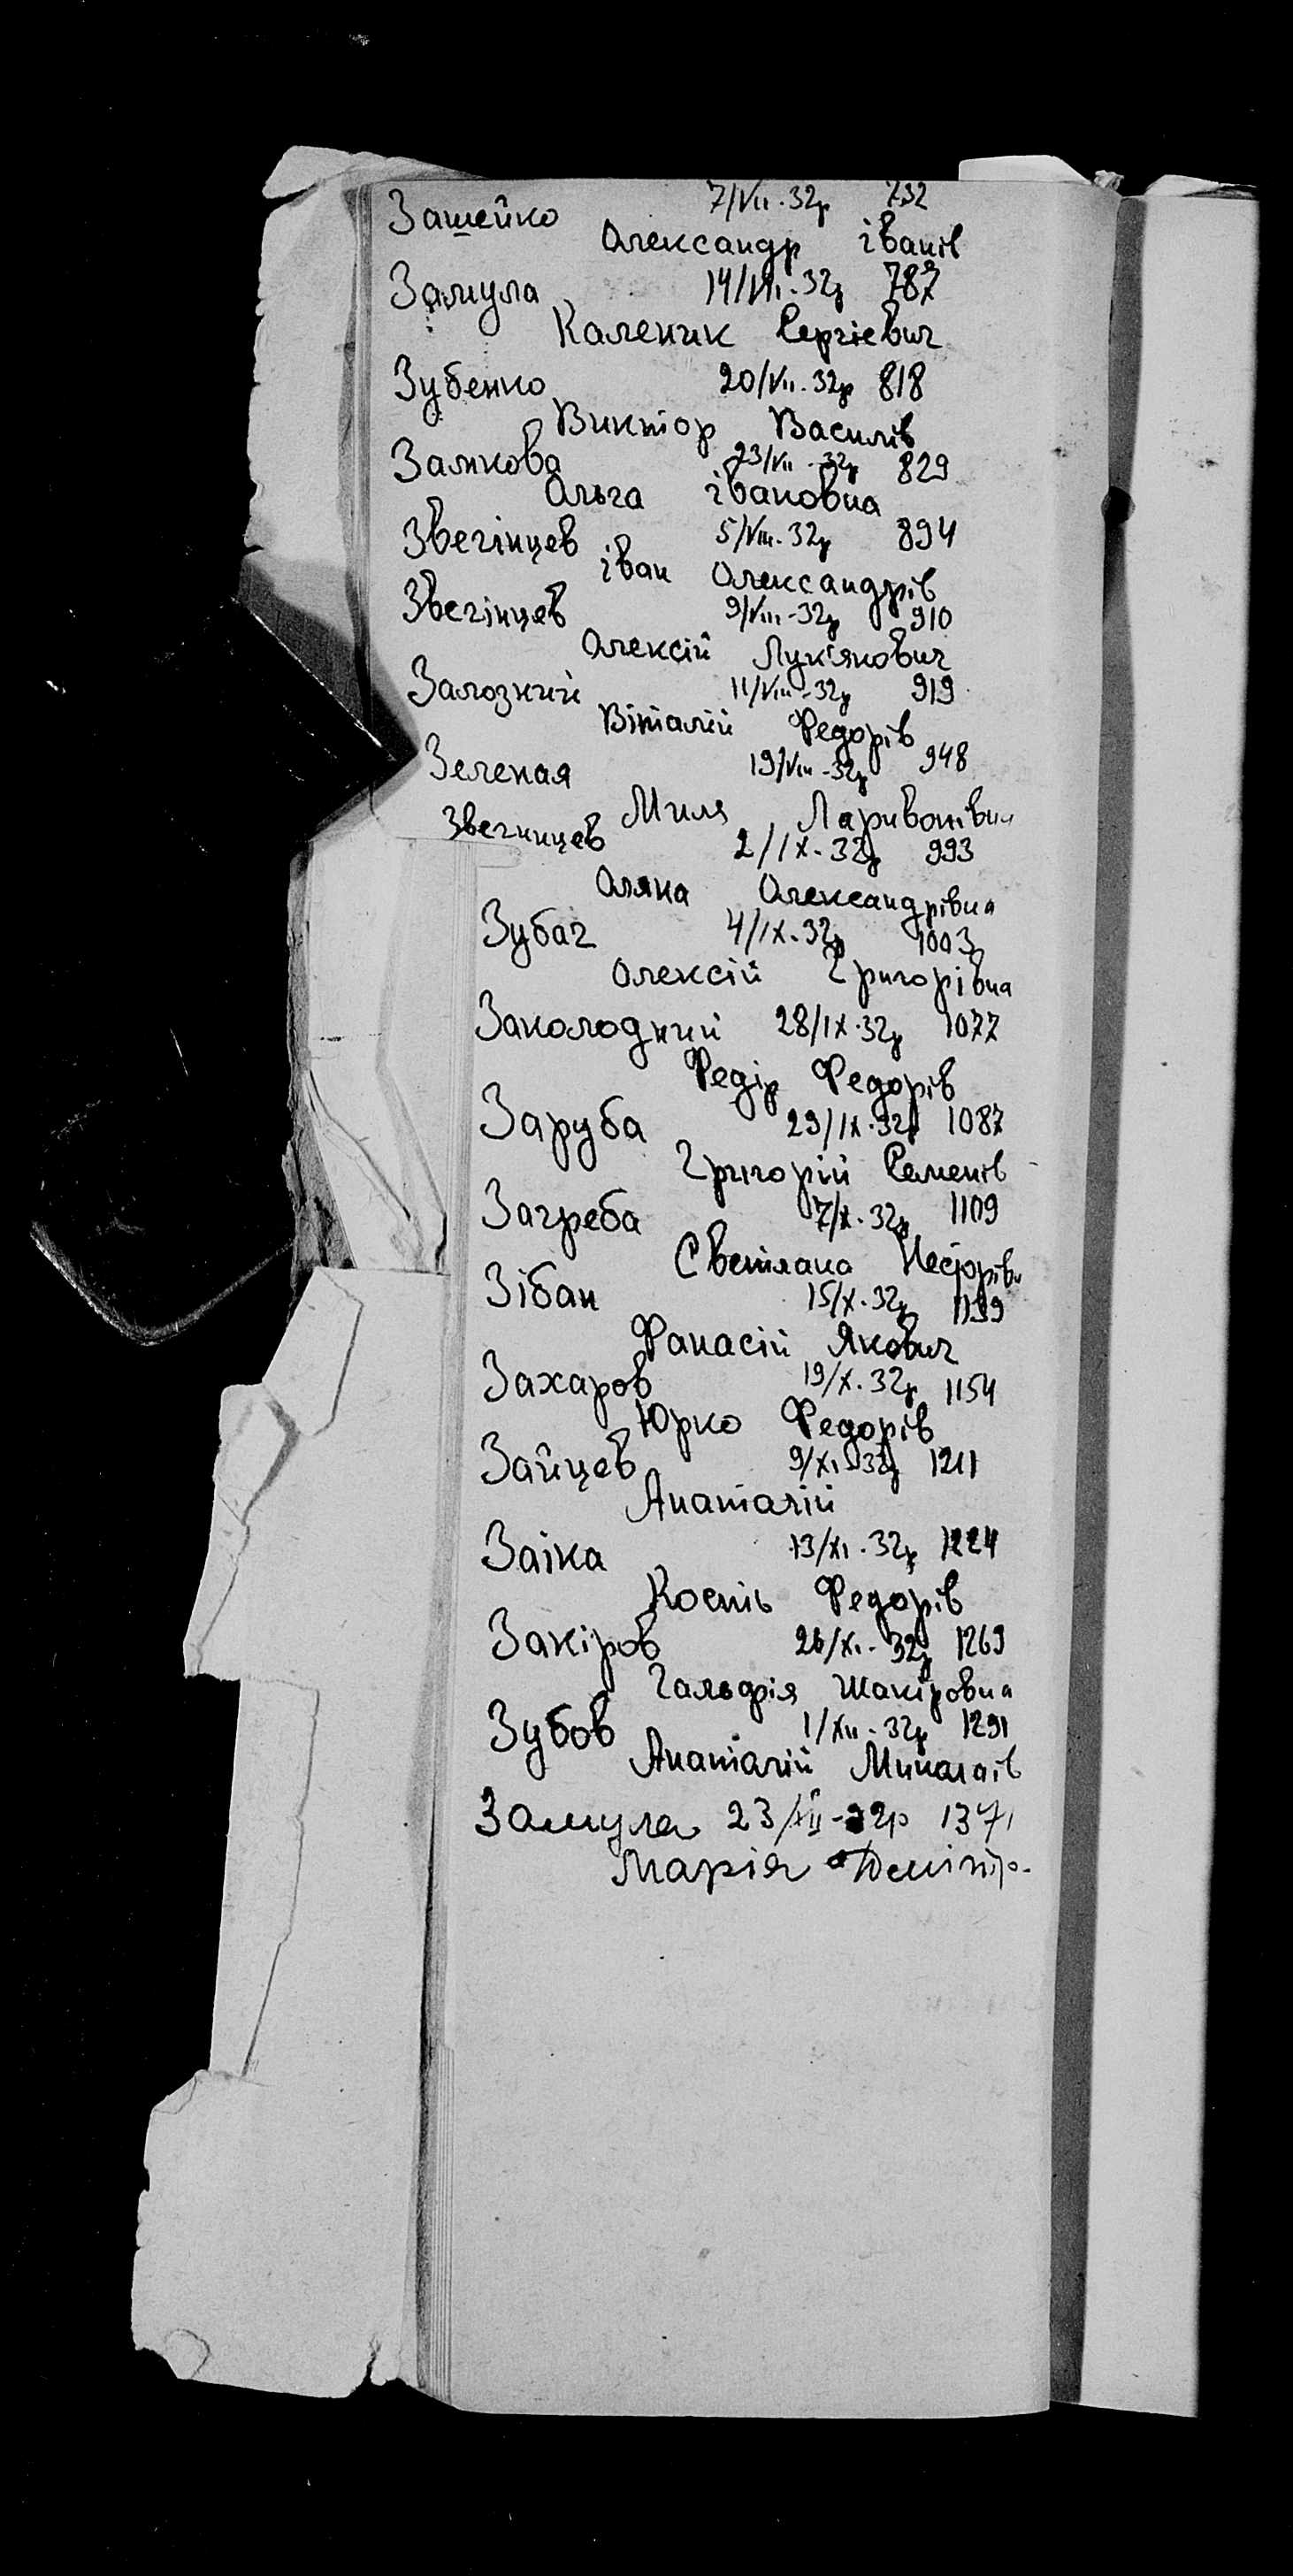 Зашейко 7/VII.32р 732
Олександр іванів
Замула 14/VII.32р 787
Каленик Сергієвич
Зубенко 20/VII.32р 818
Виктор Василів
Замкова 23/VII-32р 829
Ольга івановна
Звегінцев 5/VIII.32р 894
іван Олександрів
Звегінцев 9/VIII-32р 910
Олексій Лук'янович
Залозний 11/VIII-32р 919
Віталій Федорів
Зеленая 19/VIII-32р 948
Миля Ларивонівни
Звегинцев 2/IX-32р 993
Оляна Олександрівна
Зубач 4/IX.32р 1003
Олексій Григорівна
Заколодний 28/IX.32р 1077
Федір Федорів
Заруба 29/IX.32р 1087
Григорій Семенів
Загреба 7/X.32р 1109
Светлана
Зібан 15/X.32р 1139
Фанасій Якович
Захаров 19/X.32р 1154
Юрко Федорів
Зайцев 9/XI-32р 1211
Анатолій
Заіка 13/XI.32р 1224
Кость Федорів
Закіров 26/XI.-32р 1269
Гальфія Шакіровна
Зубов 1/XII-32р 1291
Анатолій Миколаів
Замула 23/XII-32р 1371
Марія Дмітр.